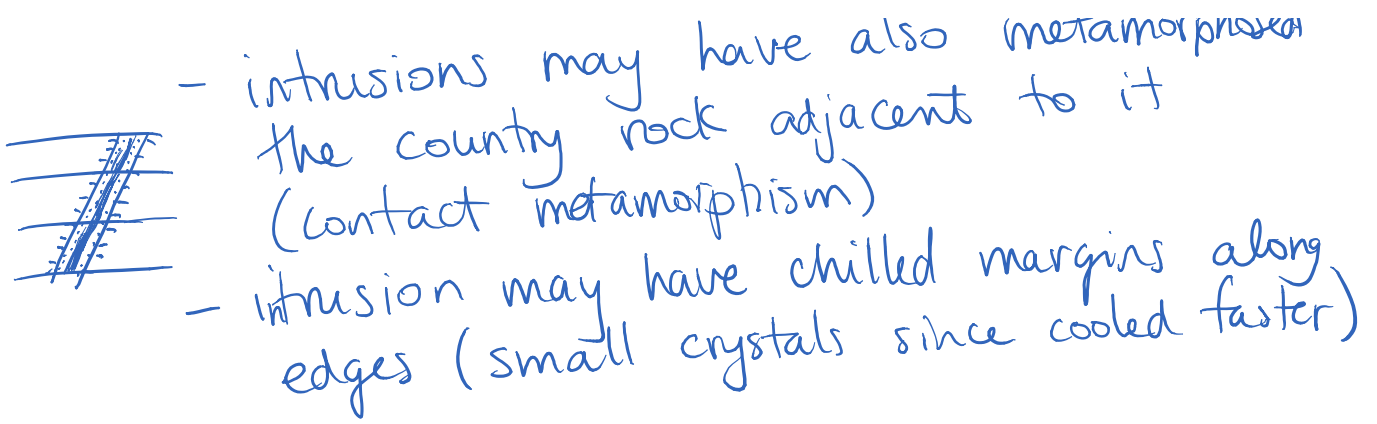 - intrusions may have also metamorphosed
the country rock adjacent to it
(contact metamorphism)
- intrusion may have chilled margins along
edges (small crystals since cooled faster)